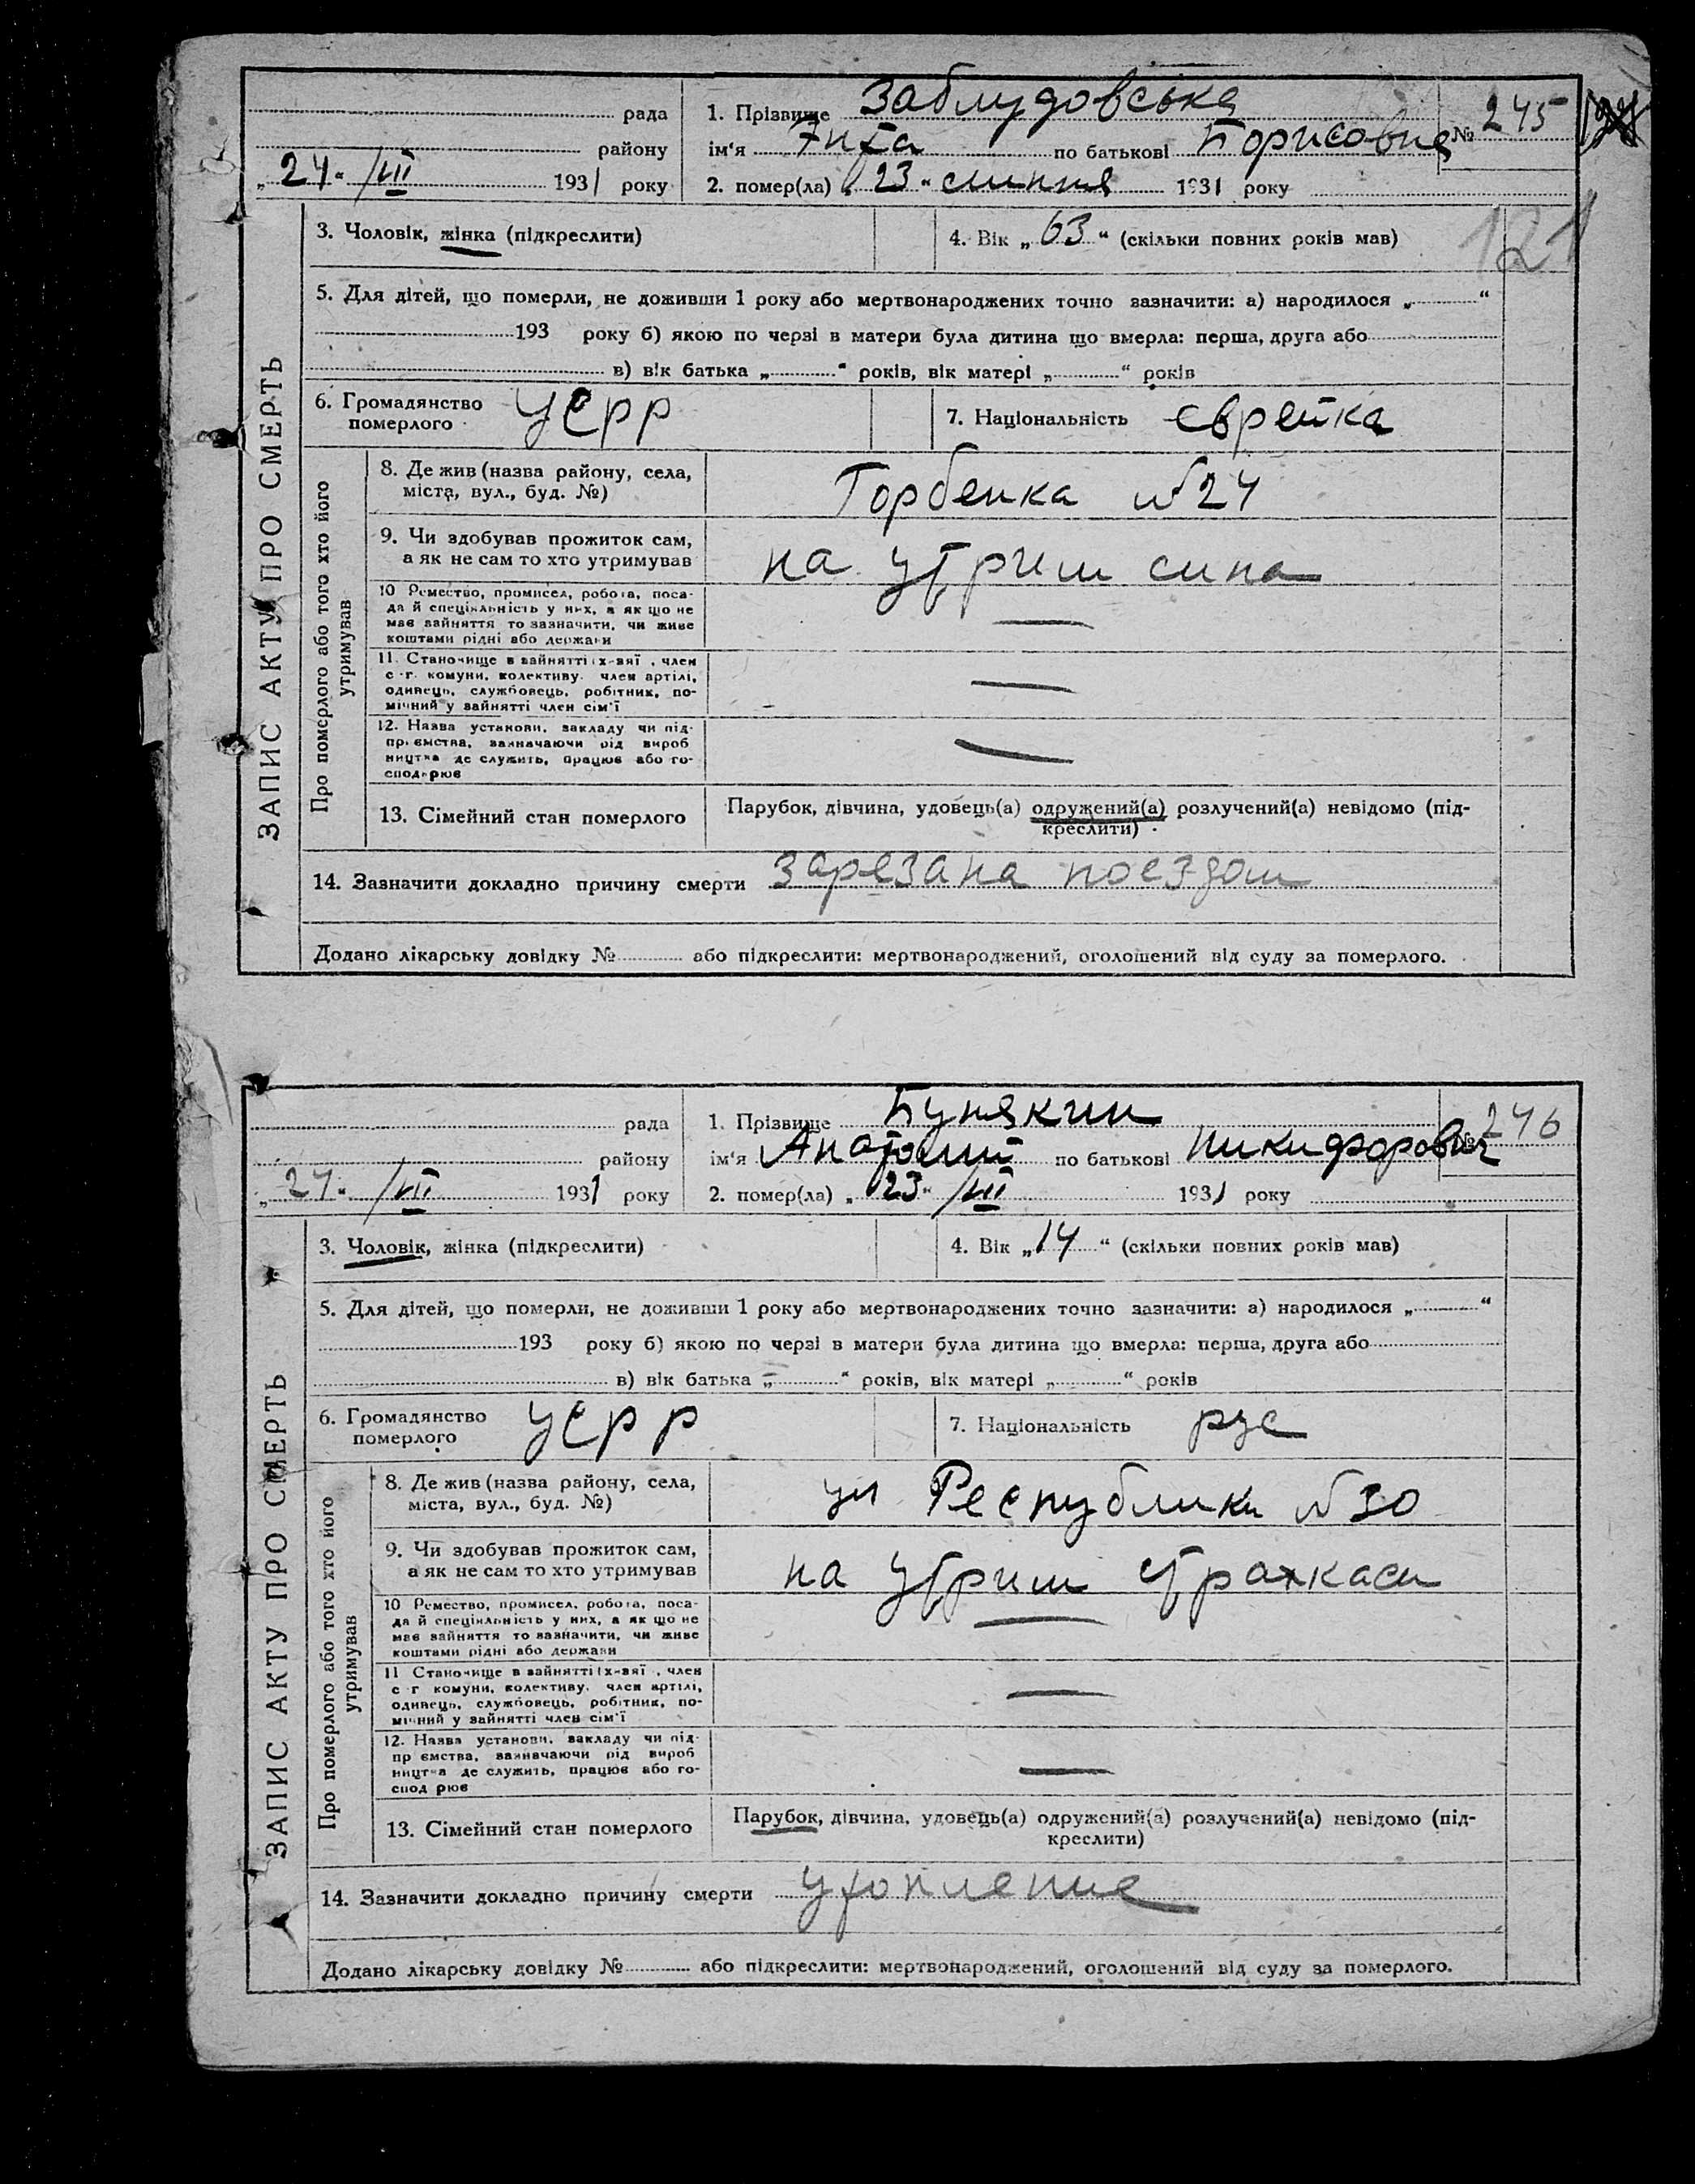 рада
району
„ 24 " /VII 1931 року
1. Прізвище Заблудовська
ім'я по батькові Борисовна
№ 245
2. помер(ла) „ 23 " липня 1931 року
121
ЗАПИС АКТУ ПРО СМЕРТЬ
3. Чоловік, жінка (підкреслити)
4. Вік „ 63 " (скільки повних років мав)
5. Для дітей, що померли, не доживши 1 року або мертвонароджених точно зазначити: а) народилося „ "
193 року б) якою по черзі в матери була дитина що вмерла: перша, друга або
в) вік батька „ " років, вік матері „ " років
6. Громадянство
померлого
УСРР
7. Національність єврейка
Про померлого або того хто його
утримував
8. Де жив (назва району, села,
міста, вул., буд. №)
Горбенка №24
9. Чи здобував прожиток сам,
а як не сам то хто утримував
на утрим сина
10 Ремество, промисел, робота, поса-
да й спеціяльність у них, а як що не
має зайняття то зазначити, чи живе
коштами рідні або держави
11. Становище в зайнятті, член
с.-г. комуни, колективу, член артілі,
одинець, службовець, робітник, по-
мічний у зайнятті член сім'ї
12. Назва установи, закладу чи під-
приємства, зазначаючи рід вироб
ництва де служить, працює або го-
сподарює
13. Сімейний стан померлого
Парубок, дівчина, удовець(а) одружений(а) розлучений(а) невідомо (під-
креслити)
14. Зазначити докладно причину смерти зарезана поездом
Додано лікарську довідку № або підкреслити: мертвонароджений, оголошений від суду за померлого.
рада
району
„ 24 " /VII 1931 року
1. Прізвище Бунякин
ім'я Анатолий по батькові Никифорович
№ 246
2. помер(ла) „ 23 " /VII 1931 року
ЗАПИС АКТУ ПРО СМЕРТЬ
3. Чоловік, жінка (підкреслити)
4. Вік „ 14 " (скільки повних років мав)
5. Для дітей, що померли, не доживши 1 року або мертвонароджених точно зазначити: а) народилося „ "
193 року б) якою по черзі в матери була дитина що вмерла: перша, друга або
в) вік батька „ " років, вік матері „ " років
6. Громадянство
померлого
УСРР
7. Національність рус
Про померлого або того хто його
утримував
8. Де жив (назва району, села,
міста, вул., буд. №)
ул Республики №30
9. Чи здобував прожиток сам,
а як не сам то хто утримував
на утрим страхкаси
10 Ремество, промисел, робота, поса-
да й спеціяльність у них, а як що не
має зайняття то зазначити, чи живе
коштами рідні або держави
11 Становище в зайнятті, член
с.-г. комуни, колективу, член артілі,
одинець, службовець, робітник, по-
мічний у зайнятті член сім'ї
12. Назва установи, закладу чи під-
приємства, зазначаючи рід вироб
ництва де служить, працює або го-
сподарює
13. Сімейний стан померлого
Парубок, дівчина, удовець(а) одружений(а) розлучений(а) невідомо (під-
креслити)
14. Зазначити докладно причину смерти утопление
Додано лікарську довідку № або підкреслити: мертвонароджений, оголошений від суду за померлого.